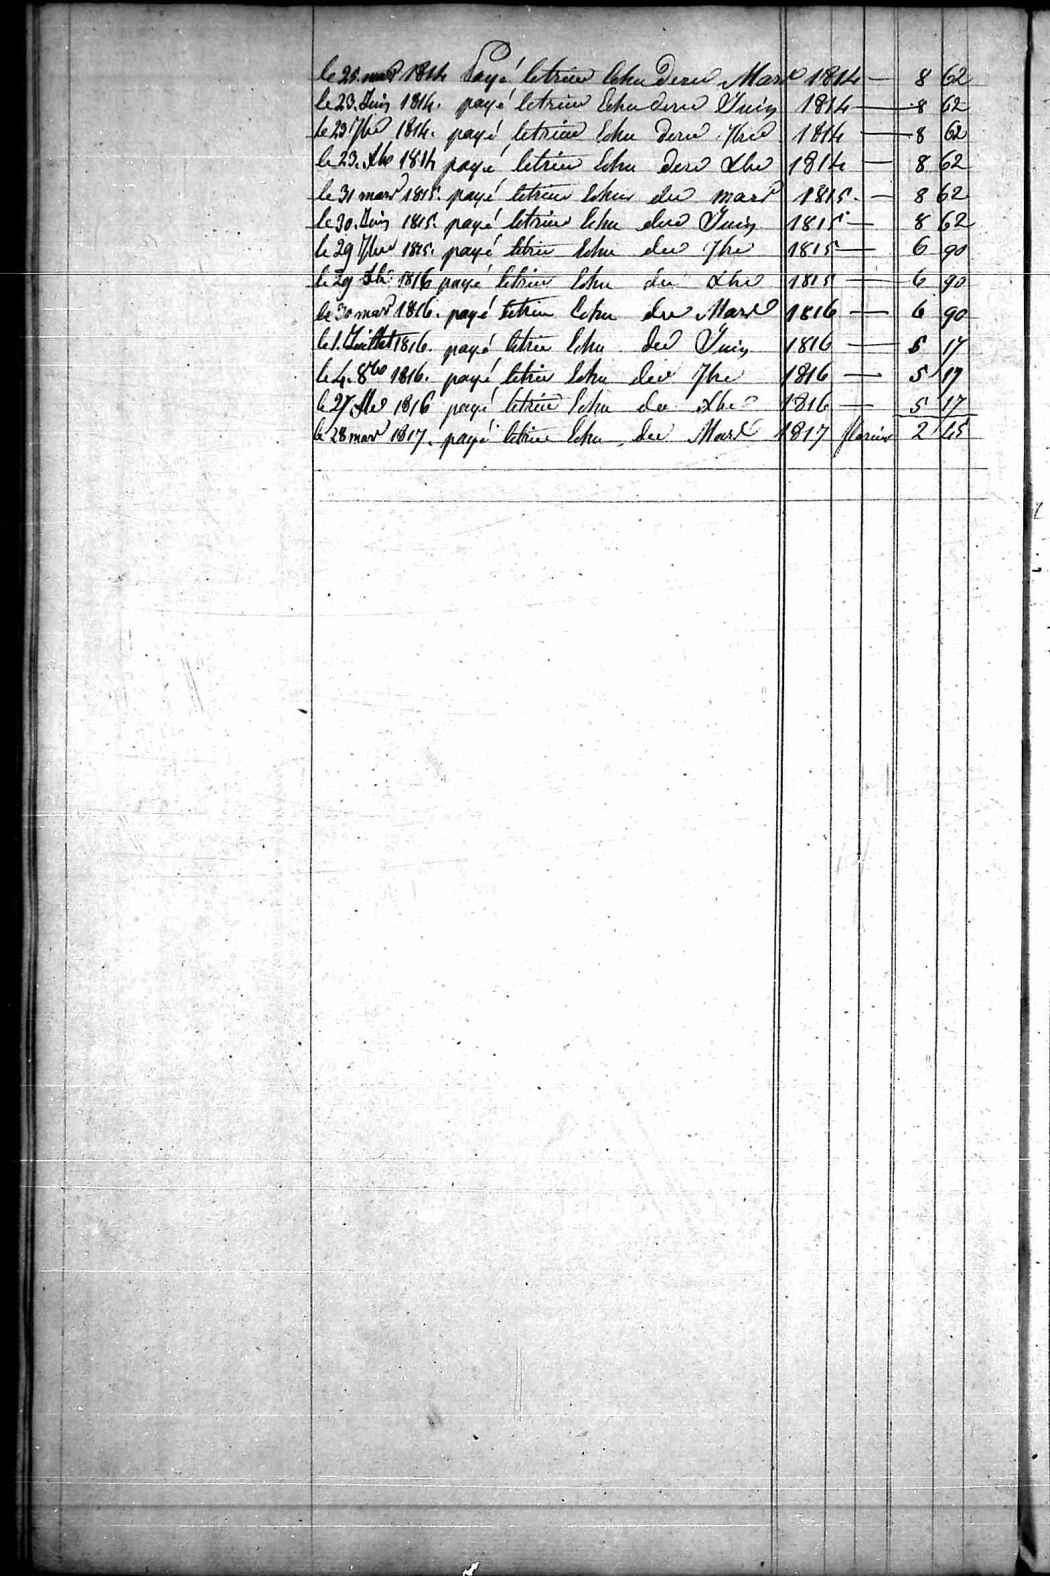 le 23. mars 1814 Payé letrim Echu Dern Mars 1814 — 8 62
le 23. Juin 1814. payé letrim Echu dern Juin 1814 — 8 62
le 23 7bre 1814. payé letrim Echu dern 7bre 1814 — 8 62
le 23. Xbre 1814 payé letrim Echu dern Xbre 1814 — 8 62
le 31 mars 1815. payé letrim Echu der mars 1815. — 8 62
le 30. Juin 1815. payé letrim Echu der Juin 1815 — 8 62
le 29 7bre 1815. payé letrim Echu der 7bre 1815 — 6 90
le 29 1816 payé letrim Echu der Xbre 1815 — 6 90
le 30 mars 1816. payé letrim Echu der Mars 1816 — 6 90
le 1. Juillet 1816. payé letrim Echu der Juin 1816 — 5 17
le 4. 8bre 1816. payé letrim Echu der 7bre 1816 — 5 17
le 27 Xbre 1816 payé letrim Echu der Xbre 1816 — 5 17
le 28 mars 1817. payé letrim Echu der Mars 1817 florins 2 45